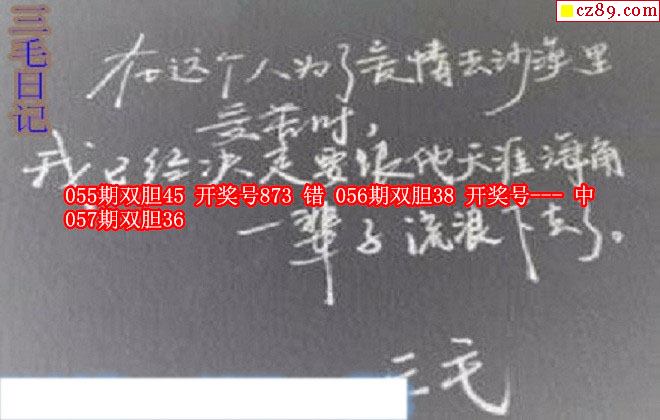 cz89.com
三毛日记
在这个人为了爱情去沙漠里
受苦时，
我已经决定要跟他天涯海角
055期双胆45 开奖号873 错 056期双胆38 开奖号--- 中
057期双胆36
一辈子流浪下去了。
三毛